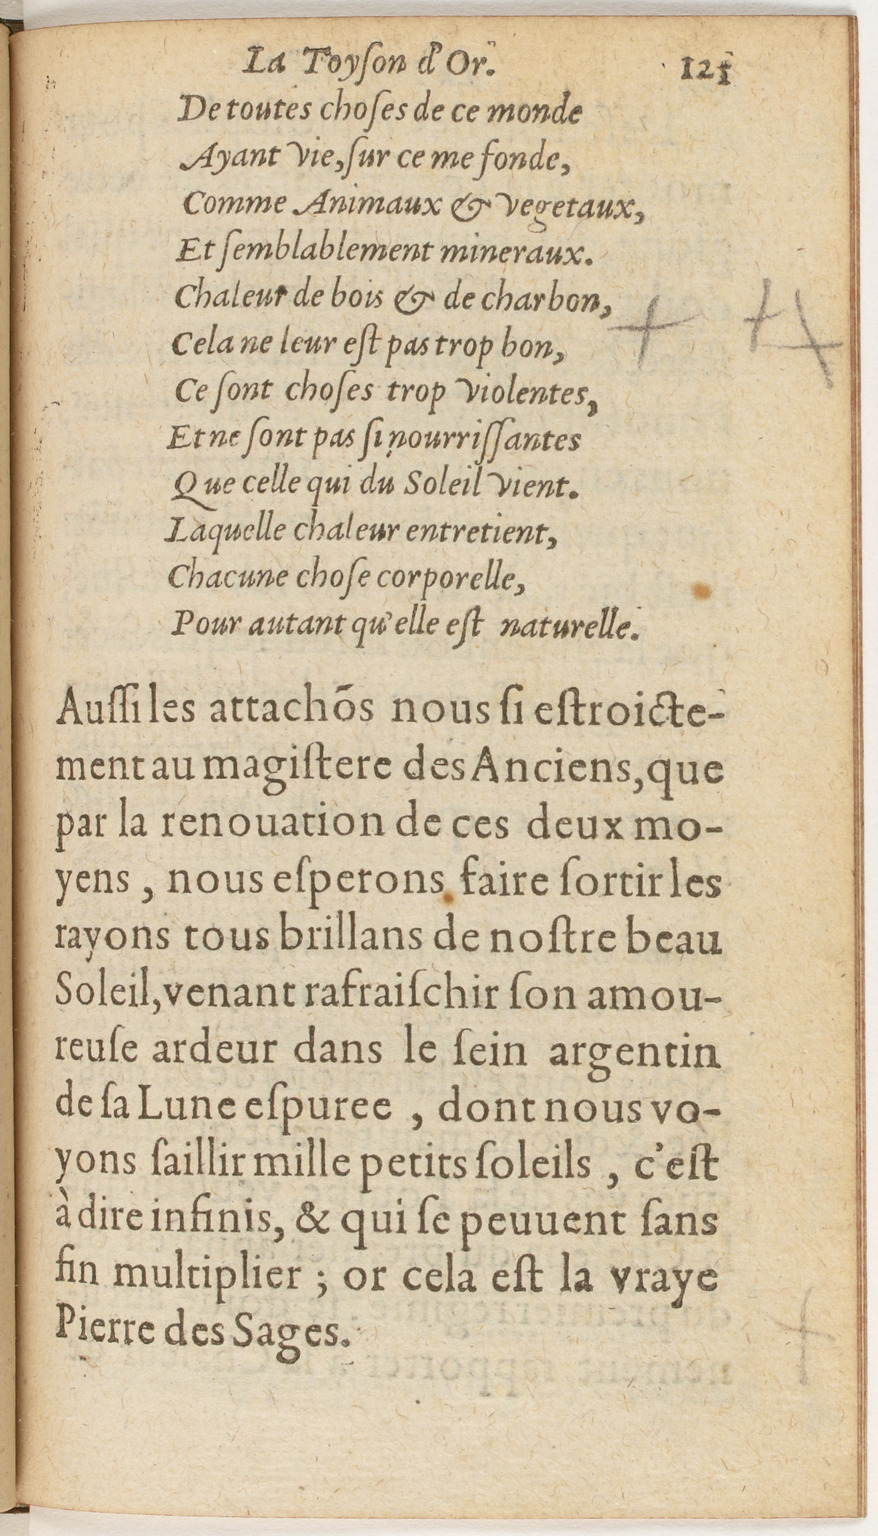 La Toyſon d'Or. 121
De toutes choſes de ce monde
Ayant vie, ſur ce me fonde,
Comme Animaux & vegetaux,
Et ſemblablement mineraux.
Chaleur de bois & de charbon,
Cela ne leur eſt pas trop bon,
Ce ſont choſes trop violentes,
Et ne ſont pas ſi nourriſſantes
Que celle qui du Soleil vient.
Laquelle chaleur entretient,
Chacune choſe corporelle,
Pour autant qu'elle eſt naturelle.
Auſſi les attachõs nous ſi eſtroicte-
ment au magiſtere des Anciens, que
par la renouation de ces deux mo-
yens, nous eſperons faire ſortir les
rayons tous brillans de noſtre beau
Soleil, venant rafraiſchir ſon amou-
reuſe ardeur dans le ſein argentin
de ſa Lune eſpuree, dont nous vo-
yons ſaillir mille petits ſoleils, c'eſt
à dire infinis, & qui ſe peuuent ſans
fin multiplier; or cela eſt la vraye
Pierre des Sages.